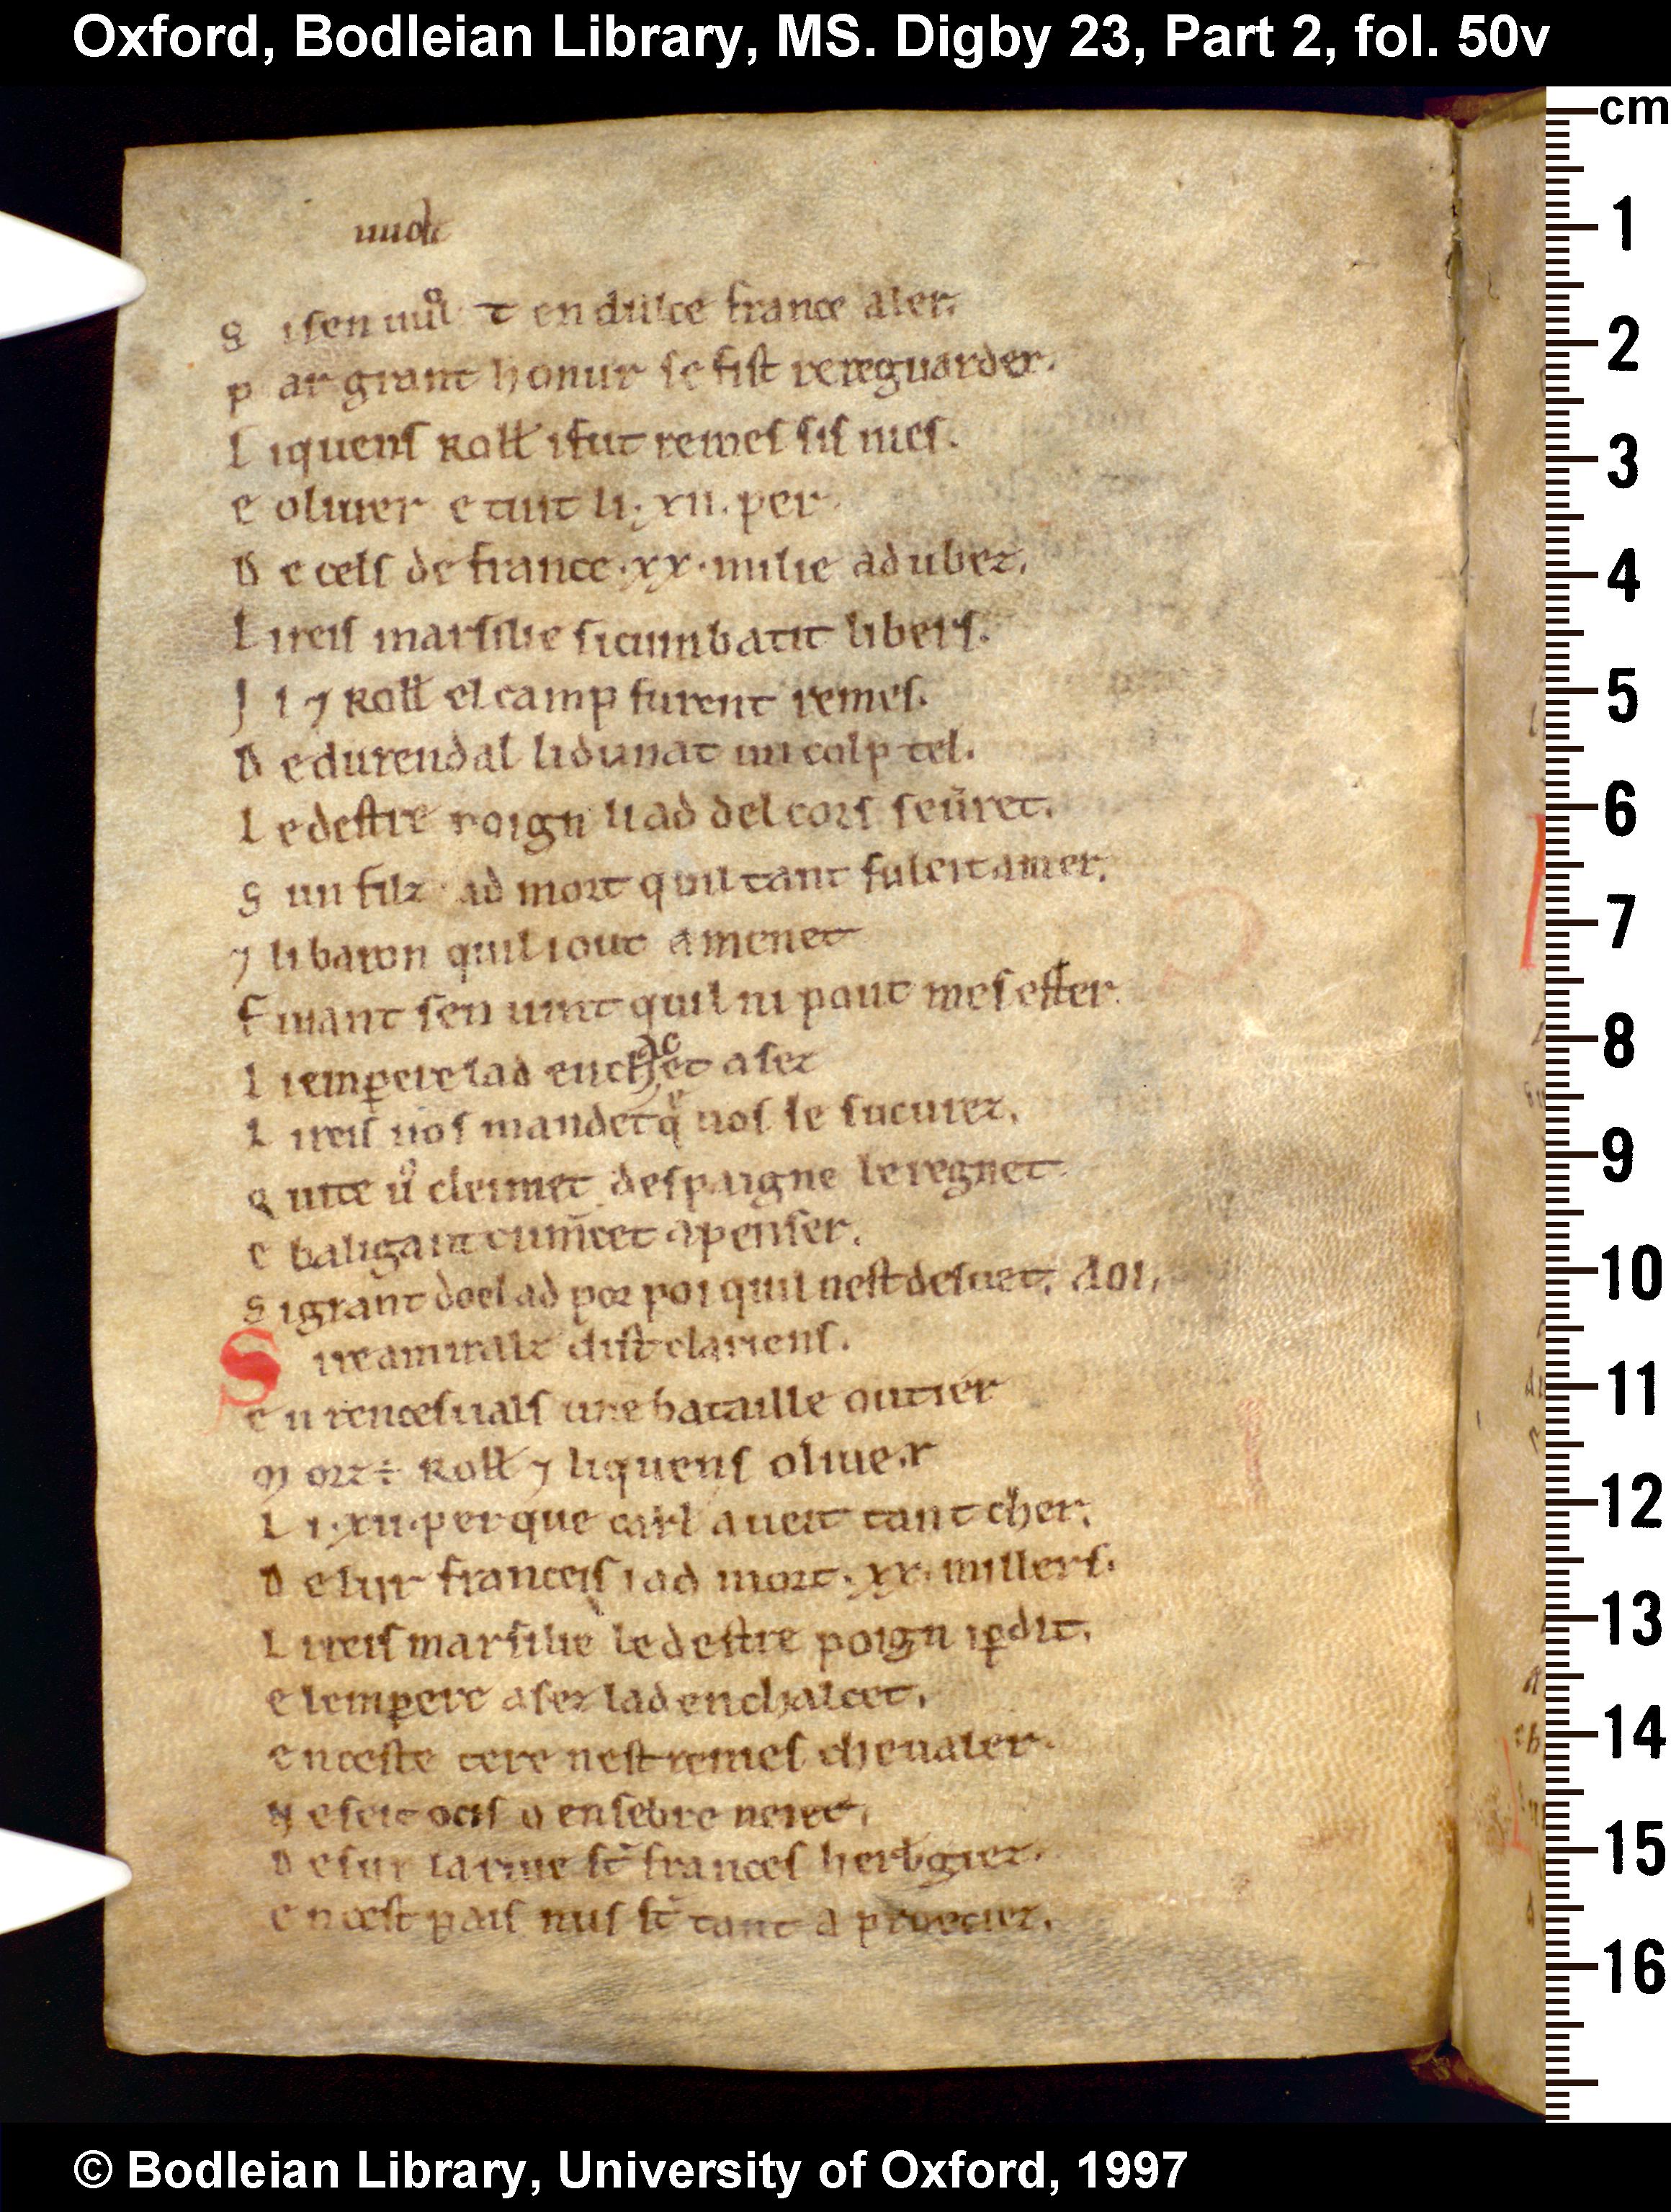 Oxford, Bodleian Library, MS. Digby 23, Part 2, fol. 50v
cm
S isen uol t en dulce france aler.
P ar grant honur se fist rereguarder.
L iquens Roll ifut remes sis nies.
E oliuer e tuit li .xii. per.
D e cels de france .xx. milie adubez.
L ireis marsilie sicumbatit libers.
J l ⁊ Roll el camp furent remes.
D edurendal lidunat un colp tel.
L edestre poign liad del cors seueret.
S un filz ad mort quil tant suleit amer.
⁊ li baron quil iout amenet
F uiant sen uint quil ni pout mes ester.
L iemperere lad enchacet asez
L ireis uos mandet que uos le sucurez.
Q uite uos cleimet despaigne leregnet
E baligant cumencet apenser.
S igrant doel ad por poi quil nest desuet. AOI.
S ire amiralz dist clariens.
E n rencesuals une bataille out ier
M ort ÷ Roll ⁊ liquens oliuer
L i .xii. per que carl aueit tant cher.
D e lur franceis i ad mort .xx. millers.
L ireis marsilie ledestre poign i perdit.
E lemperere asez lad enchalcet.
E nceste tere nest remes cheualer.
N e seit ocis o en sebre neiet.
D esur lariue st frances herbergiez.
E n cest pais nus st tant a proeciez.
1
2
3
4
5
6
7
8
9
10
11
12
13
14
15
16
© Bodleian Library, University of Oxford, 1997